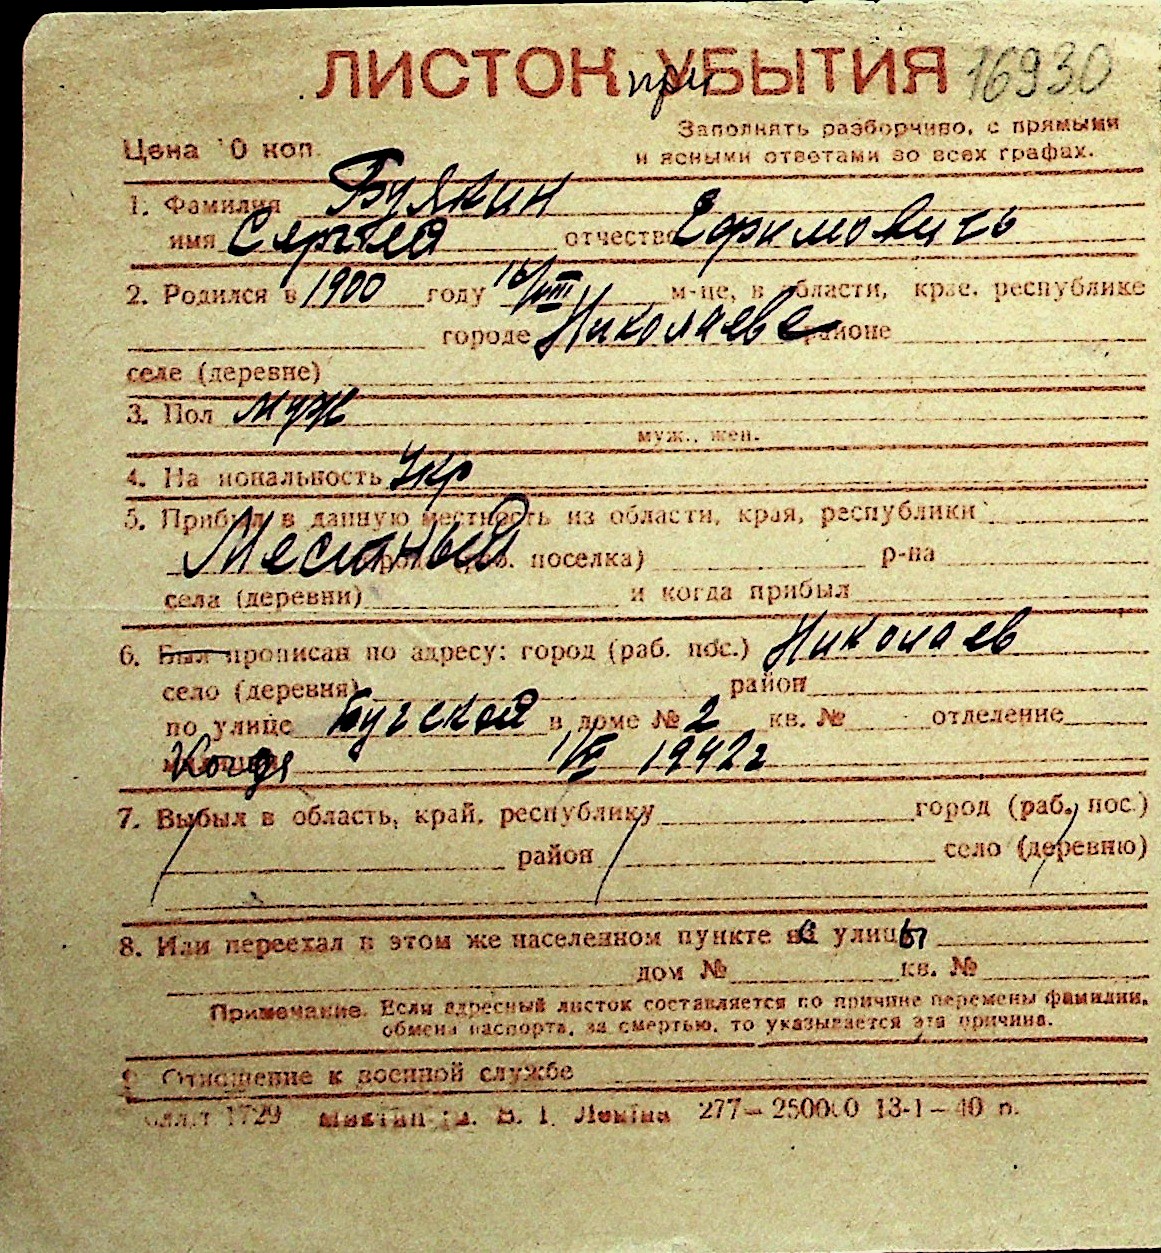 ЛИСТОК при УБЫТИЯ 16930
Заполнять разборчиво, с прямыми
Цена 10 коп. и ясными ответами во всех графах.
1. Фамилия Буякин
имя Сергей отчество Ефимович
2. Родился в 1900 году 16/VIII м-це, в области, крае, республике
городе Николаеве районе
селе (деревне)
3. Пол муж
муж., жен.
4. Национальность Укр
5. Прибыл в данную местность из области, края, республики
Местный города (раб. поселка) р-на
села (деревни) и когда прибыл
6. Был прописан по адресу: город (раб. пос.) Николаев
село (деревня) район
по улице Бугской в доме № 2 кв. № отделение
милиции Когда 1/IX 1942 г
7. Выбыл в область, край, республику город (раб. пос.)
район село (деревню)
8. Или переехал в этом же населенном пункте с улицы
дом № кв. №
Примечание. Если адресный листок составляется по причине перемены фамилии,
обмена паспорта, за смертью, то указывается эта причина.
9. Отношение к военной службе
1729 В. І. Леніна 277—250000 13-1—40 п.